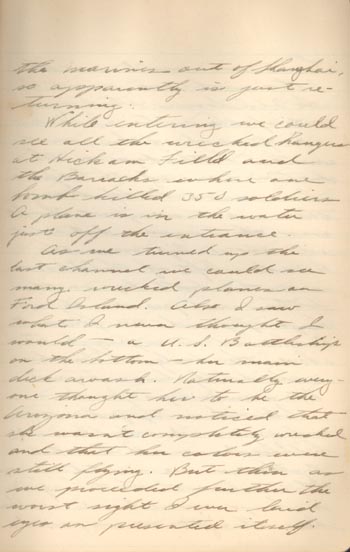 the marines out of Shanghai,
so apparently is just re-
turning.
While entering we could
see all the wrecked Hangars
at Hickam Field and
the Barracks where one
bomb killed 350 soldiers
A plane is in the water
just off the entrance.
As we turned up the
last channel we could see
many wrecked planes on
Ford Island. Also I saw
what I never thought I
would - a U.S. Battleship
on the bottom - her main
deck awash. Naturally every-
one thought her to be the
Arizona and noticed that
she wasn't completely wrecked
and that her colors were
still flying. But then as
we proceeded further the
worst sight I ever laid
eyes on presented itself.